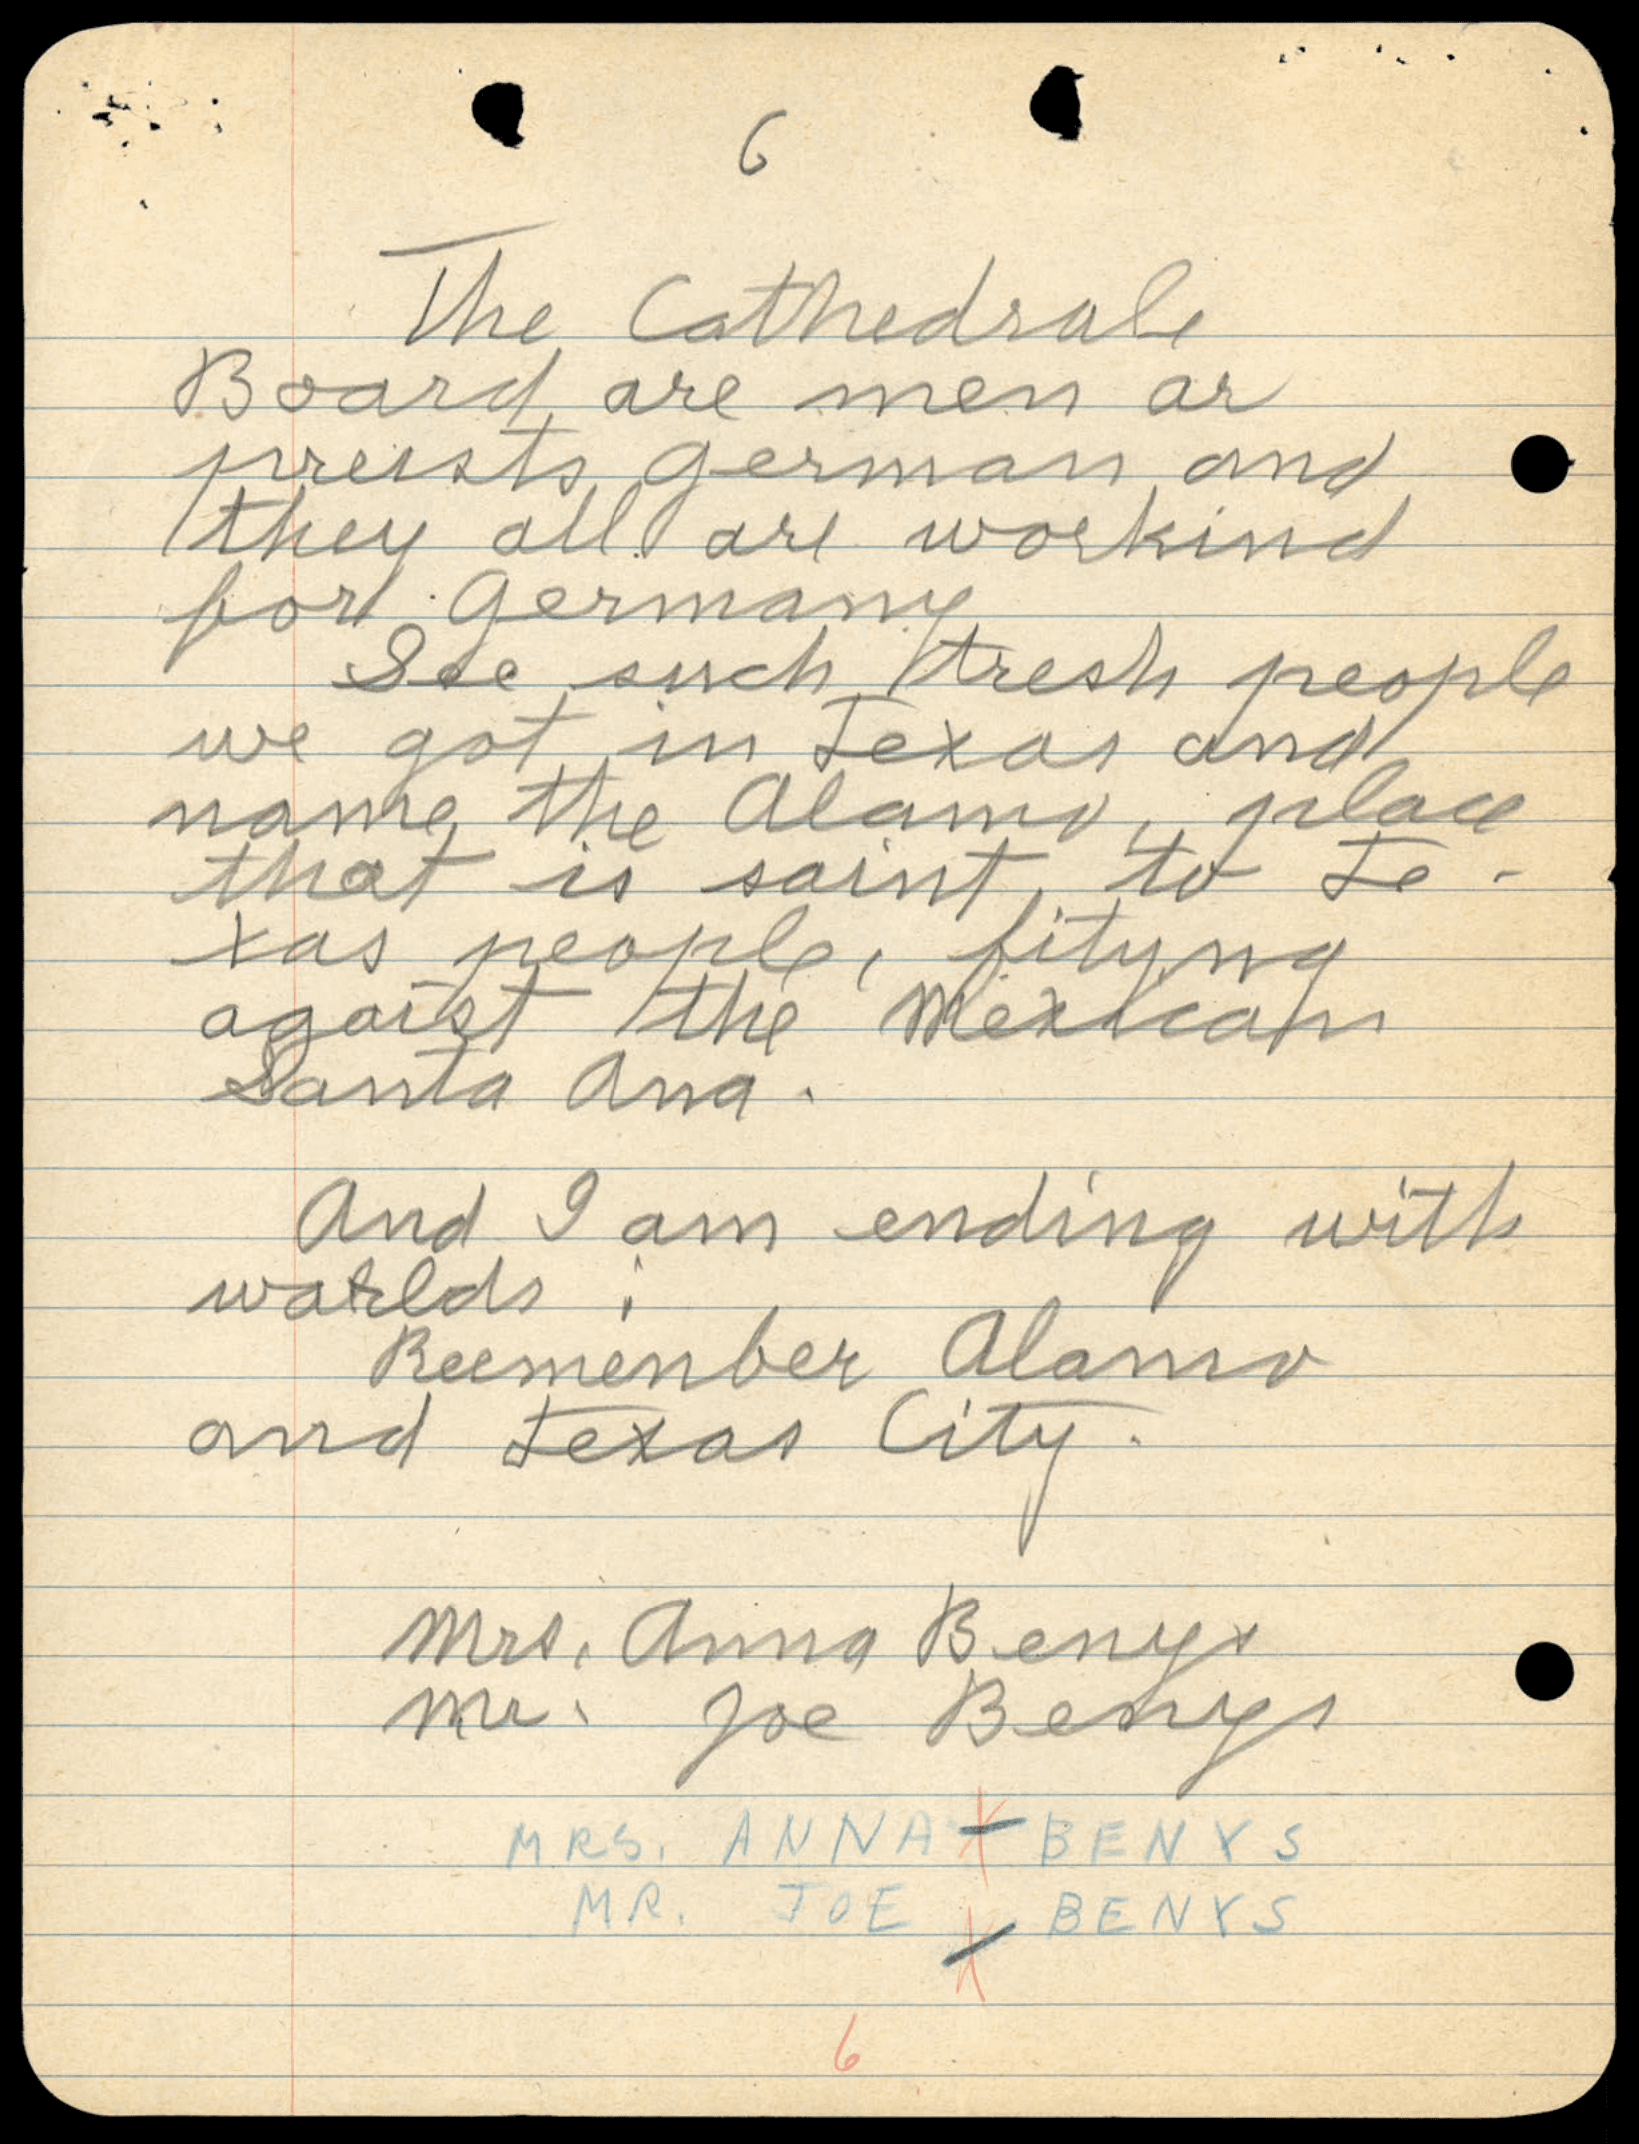 6
The Cathedrale
Board are men ar
preists german and
they all are workind
for Germany
See such tresh people
we got in Texas and
name the Alamo, place
that is saint to Te-
xas people, fityng
agaist the Mexican
Santa Ana.
And I am ending with
worlds:
Reemenber Alamo
and Texas City.
Mrs. Anna Benys
Mr. Joe Benys
MRS. ANNA BENYS
MR. JOE BENYS
6